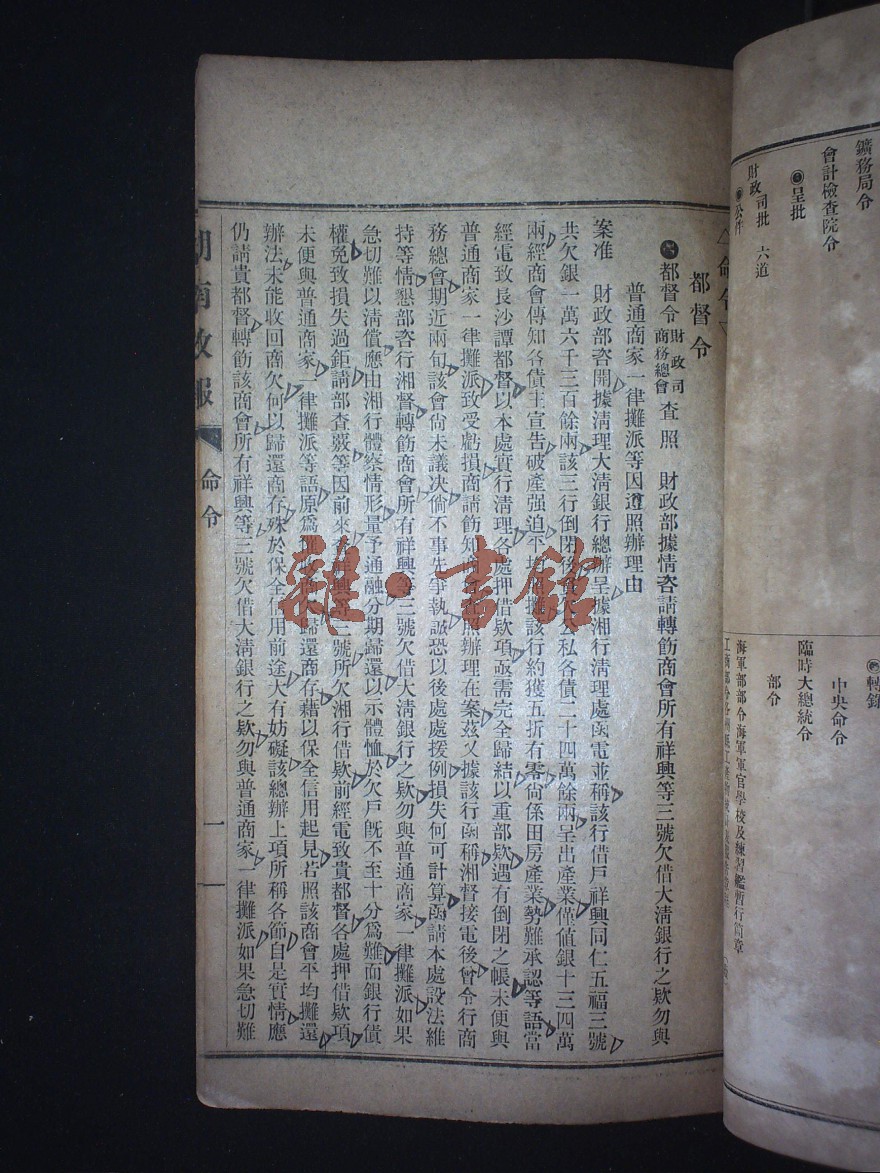 鑛務局令
會計檢查院令
呈批
財政司批 六道
公件
轉錄
中央命令
臨時大總統令
部令
海軍部部令海軍軍官學校及練習艦暫行簡章
命令
都督令
都督令財政司商務總會查照 財政部據情咨請轉飭商會所有祥興等三號欠借大淸銀行之欵勿與
普通商家一律攤派等因遵照辦理由
案准 財政部咨開據淸理大淸銀行總辦呈據湘行淸理處函電並稱該行借戶祥興同仁五福三號
共欠銀一萬六千三百餘兩該三行倒閉後公私各債二十四萬餘兩呈出產業僅値銀十三四萬
兩經商會傳知各債主宣吿破產强迫平均照攤該行約獲五折有零尙係田房產業勢難承認等語當
經電致長沙譚都督以本處實行淸理各處押借欵項亟需完全歸結以重部欵遇有倒閉之帳未便與
普通商家一律攤派致受虧損商請飭知照辦理在案茲又據該行函稱湘督接電後曾令行商
務總會期近兩旬該會尙未議决倘不事先爭執誠恐以後處處援例損失何可計算函請本處設法維
持等情懇部咨行湘督轉飭商會所有祥興等三號欠借大淸銀行之欵勿與普通商家一律攤派如果
急切難以淸償應由湘行體察情形量予通融分期歸還以示體恤於欠戶旣不至十分爲難而銀行債
權免致損失過鉅請部查覈等因前來祥興等三號所欠湘行借欵前經電致貴都督各處押借欵項
未便與普通商家一律攤派等語原爲催收商欠歸還商存藉以保全信用起見若照該商會平均攤還
辦法未能收回商欠何以歸還商存殊於保全信用前途大有妨礙該總辦上項所稱各節自是實情應
仍請貴都督轉飭該商會所有祥興等三號欠借大淸銀行之欵勿與普通商家一律攤派如果急切難
湖南政報
命令
一
雜·書館